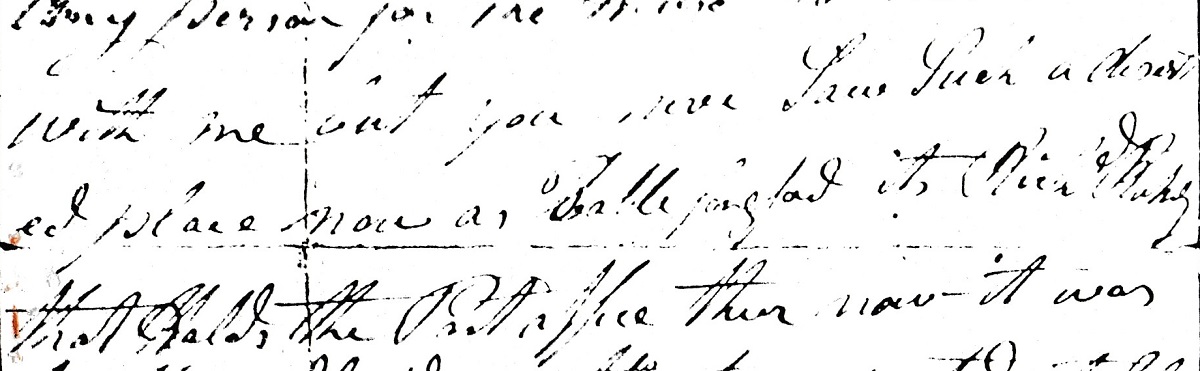 my person for the
with me but you never Saw Such a desert
ed place now as Balle jonglad its Rich'd
that Holds the Post office ther now it was